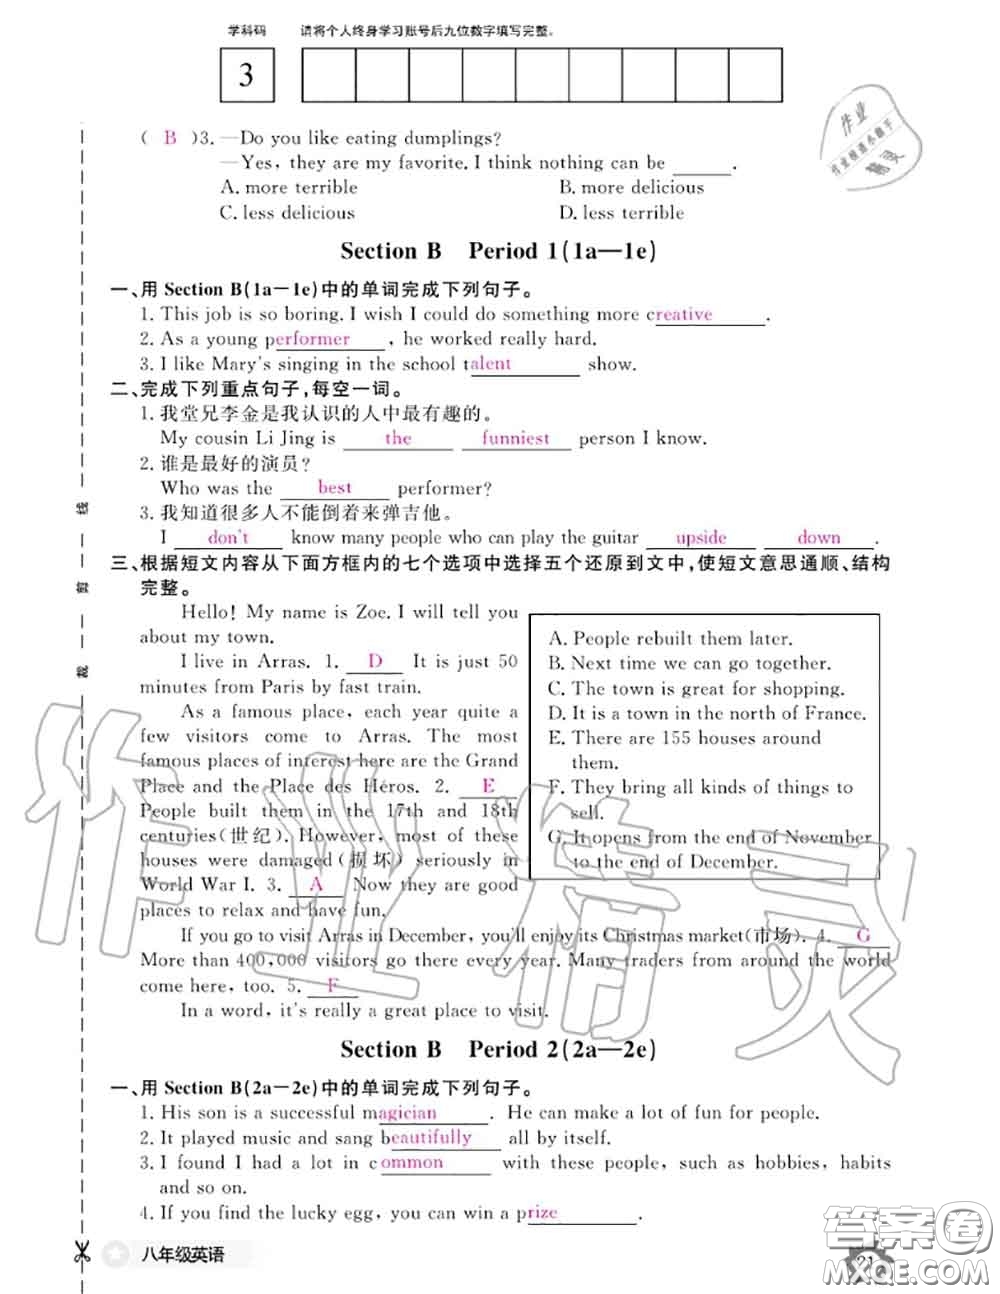 学科码 请将个人终身学习账号后九位数字填写完整。
3
( B )3. —Do you like eating dumplings?
—Yes, they are my favorite. I think nothing can be ______.
A. more terrible B. more delicious
C. less delicious D. less terrible
Section B Period 1(1a—1e)
一、用 Section B(1a—1e)中的单词完成下列句子。
1. This job is so boring. I wish I could do something more creative.
2. As a young performer, he worked really hard.
3. I like Mary's singing in the school talent show.
二、完成下列重点句子,每空一词。
1. 我堂兄李金是我认识的人中最有趣的。
My cousin Li Jing is the funniest person I know.
2. 谁是最好的演员?
Who was the best performer?
3. 我知道很多人不能倒着来弹吉他。
I don't know many people who can play the guitar upside down.
三、根据短文内容从下面方框内的七个选项中选择五个还原到文中,使短文意思通顺、结构
完整。
Hello! My name is Zoe. I will tell you
about my town.
I live in Arras. 1. D It is just 50
minutes from Paris by fast train.
As a famous place, each year quite a
few visitors come to Arras. The most
famous places of interest here are the Grand
Place and the Place des Héros. 2. E
People built them in the 17th and 18th
centuries(世纪). However, most of these
houses were damaged(损坏) seriously in
World War I. 3. A Now they are good
places to relax and have fun.
A. People rebuilt them later.
B. Next time we can go together.
C. The town is great for shopping.
D. It is a town in the north of France.
E. There are 155 houses around
them.
F. They bring all kinds of things to
sell.
G. It opens from the end of November
to the end of December.
If you go to visit Arras in December, you'll enjoy its Christmas market(市场). 4. G
More than 400,000 visitors go there every year. Many traders from around the world
come here, too. 5. F
In a word, it's really a great place to visit.
Section B Period 2(2a—2e)
一、用 Section B(2a—2e)中的单词完成下列句子。
1. His son is a successful magician. He can make a lot of fun for people.
2. It played music and sang beautifully all by itself.
3. I found I had a lot in common with these people, such as hobbies, habits
and so on.
4. If you find the lucky egg, you can win a prize.
八年级英语
21
裁 剪 线
作业精灵
作业
作业检查小助手
精灵
答案圈
MXQE.COM